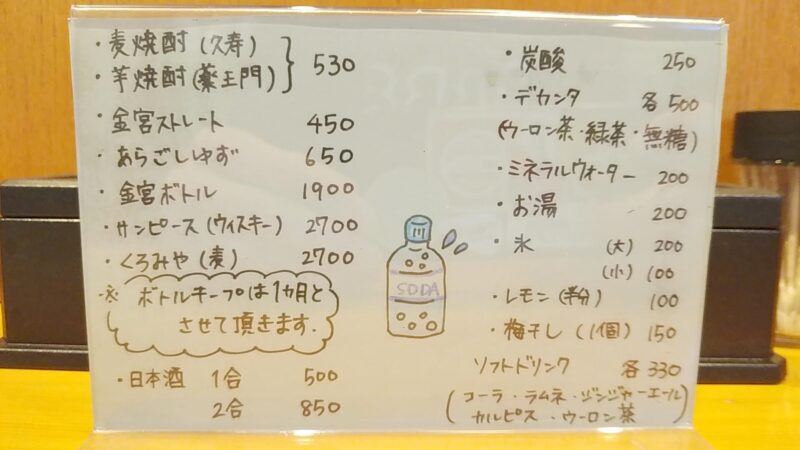 ・麦焼酎(久寿)
・芋焼酎(薬王門) } 530
・金宮ストレート 450
・あらごしゆず 650
・金宮ボトル 1900
・サンピース(ウィスキー) 2700
・くろみや(麦) 2700
※ ボトルキープは1カ月と
させて頂きます.
・日本酒 1合 500
2合 850
SODA
・炭酸 250
・デカンタ 各500
(ウーロン茶・緑茶・無糖)
・ミネラルウォーター 200
・お湯 200
・氷 (大) 200
(小) 100
・レモン(半分) 100
・梅干し(1個) 150
ソフトドリンク 各330
(コーラ・ラムネ・ジンジャーエール
カルピス・ウーロン茶)